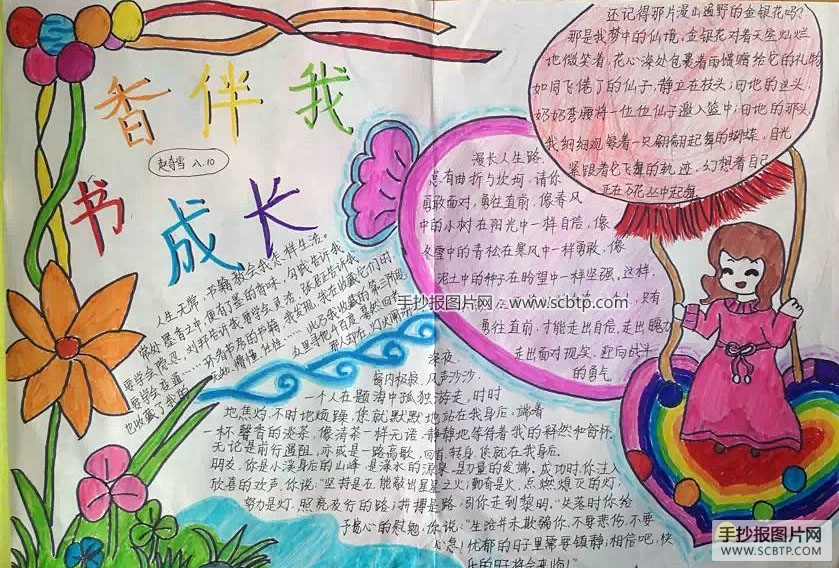 书
香伴我
成长
赵奇雪 八.10
还记得那片漫山遍野的金银花吗?
那是我梦中的仙境,金银花对着天空灿烂
地微笑着,花心深处包裹着雨馈赠给它的礼物
如同飞倦了的仙子,静立在枝头;田地的这头,
奶奶弯腰将一位位仙子邀入篮中;田地的那头,
我细细观察着一只翩翩起舞的蝴蝶,目光
紧跟着它飞舞的轨迹,幻想着自己
正在花丛中起舞
漫长人生路,
总有曲折与坎坷,请你
勇敢面对,勇往直前,像春风
中的小树在阳光中一样自信,像
冬雪中的青松在寒风中一样勇敢,像
泥土中的种子在盼望中一样坚强,这样,
只有
勇往直前,才能走出自信,走出魄力
走出面对现实,迎向战斗
的勇气
人生无常,书籍教会我怎样生活。
常处墨香之中,便有了墨的香味,勾践告诉我
要学会隐忍,刘邦告诉我要学会灵活,张骞告诉我
要学会
也收藏了我的
深夜,
窗内板寂,风声沙沙.
一个人在题海中孤独游走,时时
地焦灼,不时地烦躁,您就默默地站在我身后,端着
一杯馨香的淡茶,像清茶一样无语,静静地等待着我的释然和舒怀.
无论是前行通阻,亦或是一路高歌,回首,转身,您就在我身后.
朋友,你是小溪身后的山峰,是涤水的源泉,是力量的发端,成功时你注入
欣喜的欢声,你说:"坚持是石,能敲出星星之火;勤奋是火,点燃熄灭的灯;
努力是灯,照亮夜行的路;拼搏是路,引你走到黎明."失落时你给
予贴心的慰勉,你说:"生活并未欺骗你,不要悲伤,不要
心急!忧郁的日子里需要镇静;相信吧,快
乐的日子将会来临!"
手抄报图片网:www.scbtp.com
手抄报图片网
WWW.SCBTP.COM